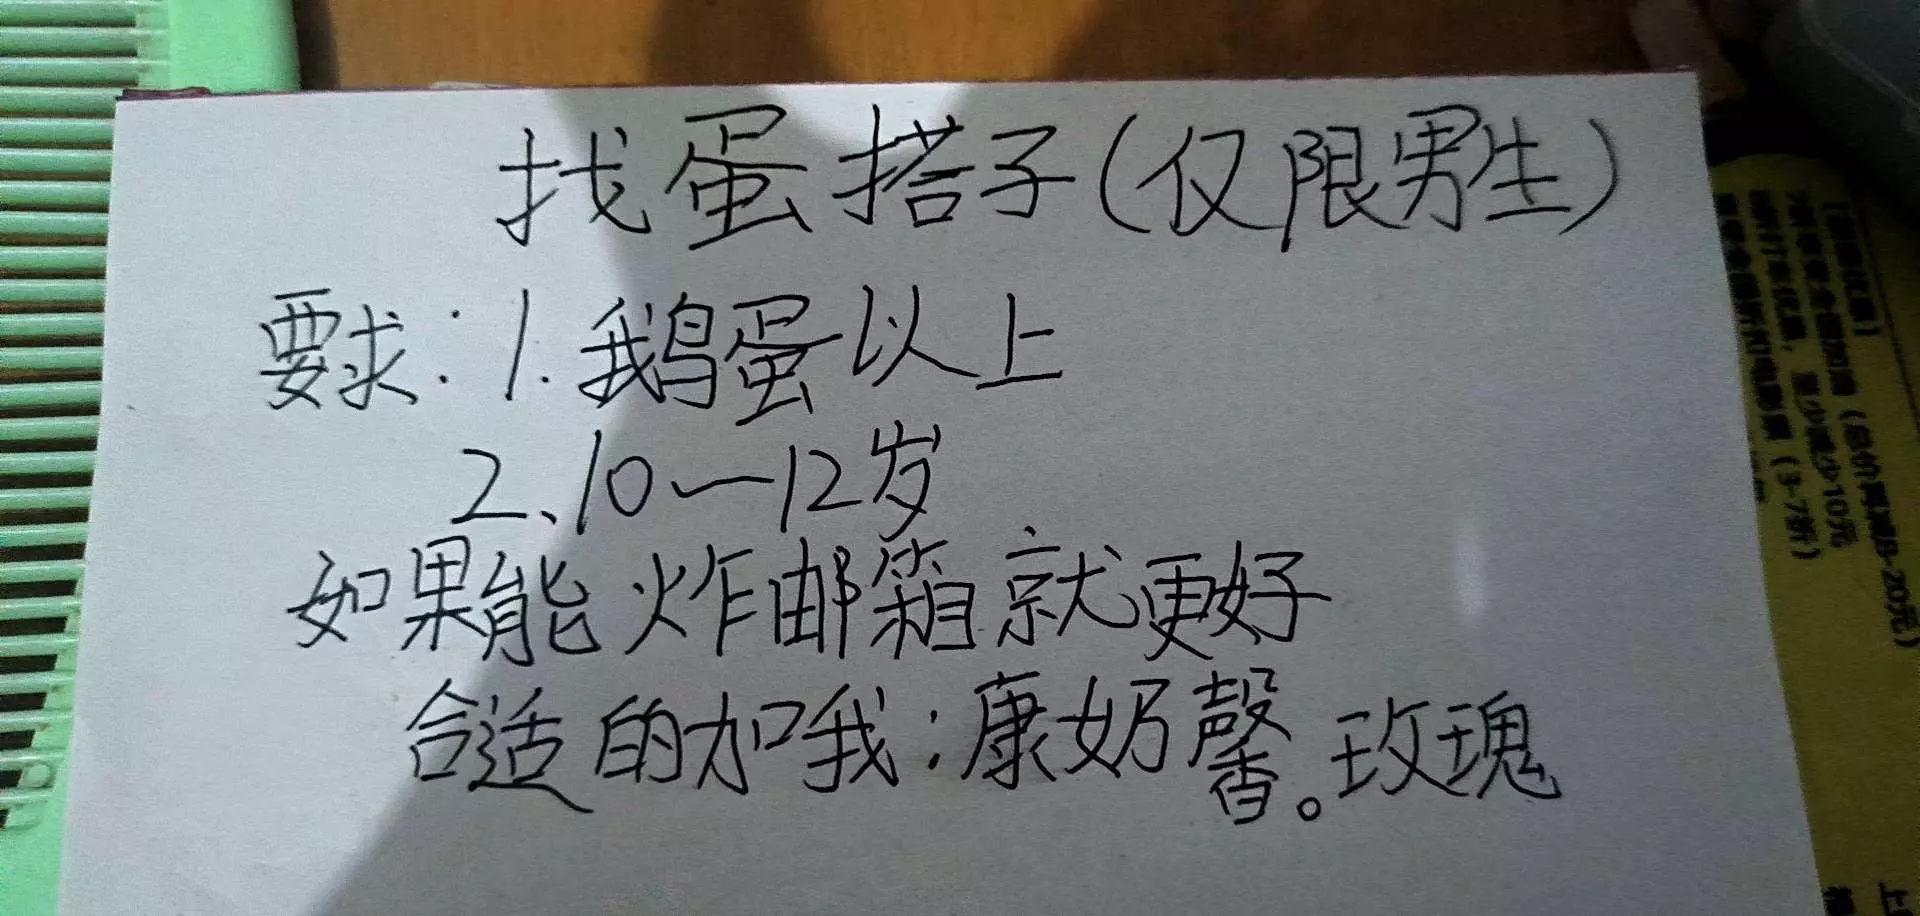 找蛋搭子(仅限男生)
要求：1.鹅蛋以上
2、10—12岁
如果能炸邮箱就更好
合适的加我：康奶馨。玫瑰